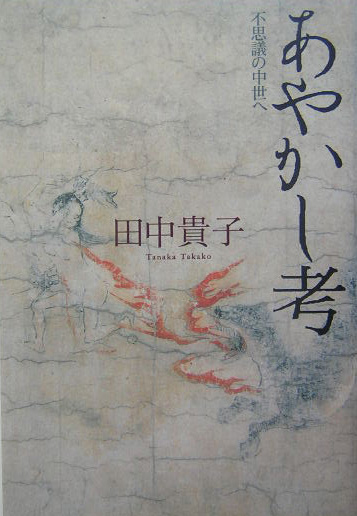 あやかし考
不思議の中世へ
田中貴子
Tanaka Takako